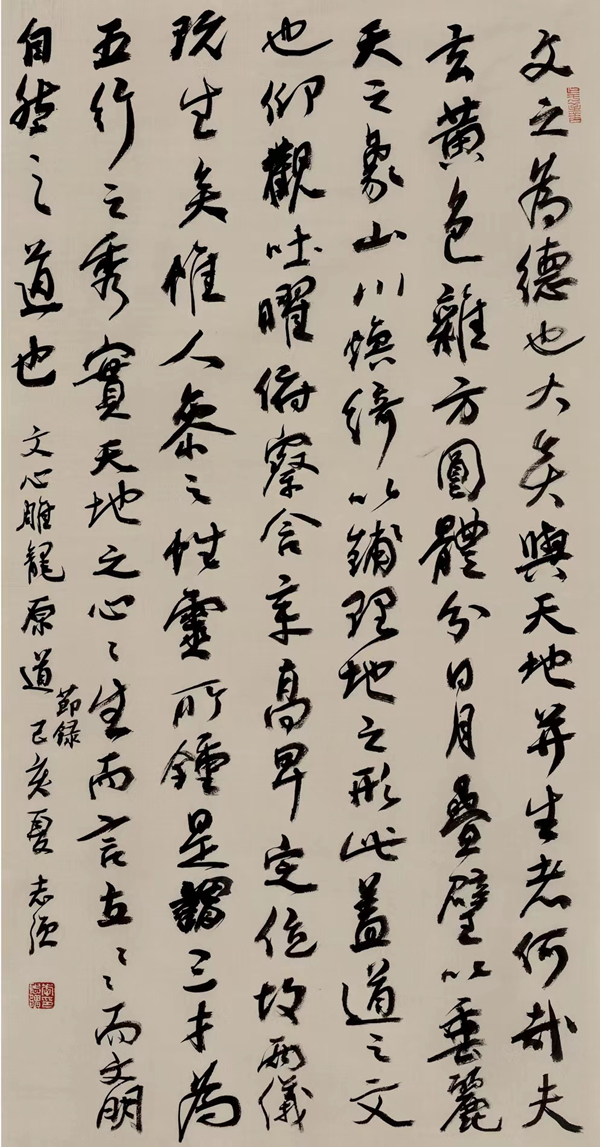 文之為德也大矣與天地并生者何哉夫
玄黃色雜方圓體分日月疊璧以垂麗
天之象山川煥綺以鋪理地之形此蓋道之文
也仰觀吐曜俯察含章高卑定位故兩儀
既生矣惟人參之性靈所鍾是謂三才為
五行之秀實天地之心〻生而言立〻而文明
自然之道也 文心雕龍原道 節録 己亥夏 志强